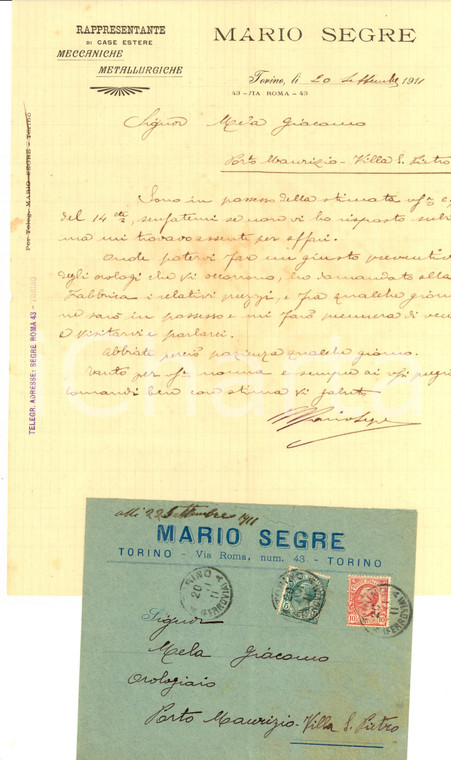 RAPPRESENTANTE
DI CASE ESTERE
MECCANICHE
METALLURGICHE
MARIO SEGRE
Torino, li 20 Settembre 1911
43 - VIA ROMA - 43
Per Teleg. MARIO SEGRE - Torino
TELEGR. ADRESSE: SEGRE ROMA 43 - TORINO
Signor Mela Giacomo
Porto Maurizio - Villa S. Pietro
Sono in possesso della stimata
del 14 scusatemi se non vi ho risposto
ma mi trovavo assente per affari.
Onde potervi far un giusto preventivo
degli orologi che vi occorrono, ho domandato alla
Fabbrica i relativi prezzi, e fra qualche
ne sarò in possesso e mi farò premura di
a visitarvi e parlarci.
Abbiate perciò pazienza qualche giorno.
Tanto per norma e sempre ai
comandi ben con stima Vi saluto
Mario Segre
alli 22 Settembre 1911
MARIO SEGRE
TORINO - Via Roma, num. 43 - TORINO
Signor
Mela Giacomo
Orologiaio
Porto Maurizio - Villa S. Pietro